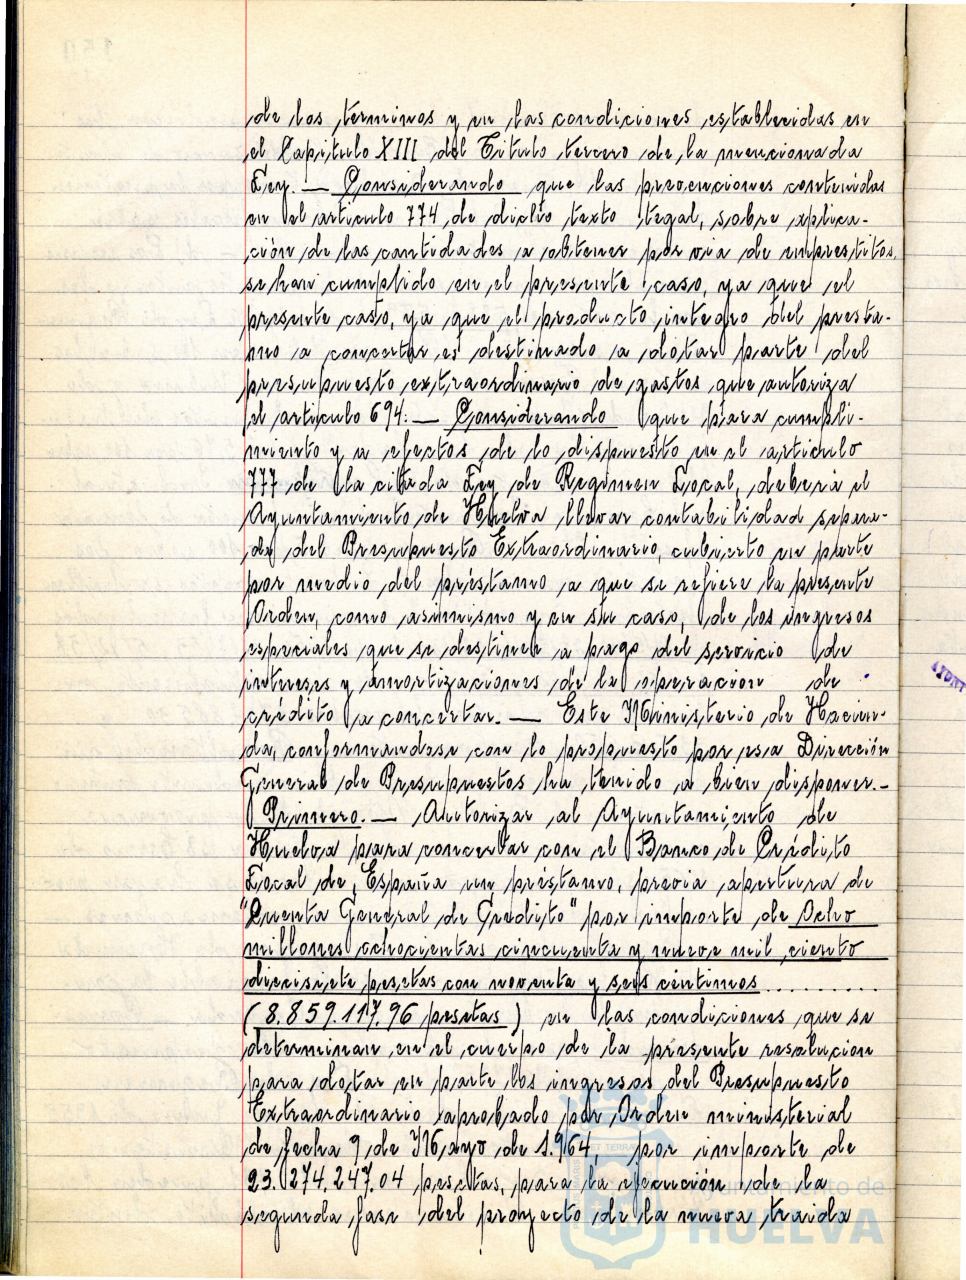 de los terminos y en las condiciones establecidas en
el Capitulo XIII del Titulo tercero de la mencionada
Ley. — Considerando que las prevenciones contenidas
en el articulo 774 de dicho texto legal, sobre aplica-
ción de las cantidades a obtener por via de emprestitos,
se han cumplido en el presente caso, ya que el
presente caso, ya que el producto integro del presta-
mo a concertar es destinado a dotar parte del
presupuesto extraordinario de gastos que autoriza
el articulo 694: — Considerando que para cumpli-
miento y a efectos de lo dispuesto en el articulo
777 de la citada Ley de Regimen Local, deberá el
Ayuntamiento de Huelva llevar contabilidad separa-
da del Presupuesto Extraordinario, cubierto en parte
por medio del préstamo a que se refiere la presente
Orden, como asimismo y en su caso, de los ingresos
especiales que se destinen a pago del servicio de
intereses y amortizaciones de la operacion de
crédito a concertar. — Este Ministerio de Hacien-
da, conformandose con lo propuesto por esa Dirección
General de Presupuestos ha tenido a bien disponer.-
Primero. — Autorizar al Ayuntamiento de
Huelva para concertar con el Banco de Crédito
Local de España un préstamo, previa apertura de
"Cuenta General de Credito" por importe de Ocho
millones ochocientas cincuenta y nueve mil ciento
diecisiete pesetas con noventa y seis céntimos .........
(8.859.117,96 pesetas) en las condiciones que se
determinan en el cuerpo de la presente resolucion
para dotar en parte los ingresos del Presupuesto
Extraordinario aprobado por Orden ministerial
de fecha 9 de Mayo de 1.964, por importe de
23.274.247.04 pesetas, para la ejecución de la
segunda fase del proyecto de la nueva traida
Ayuntamiento de
HUELVA